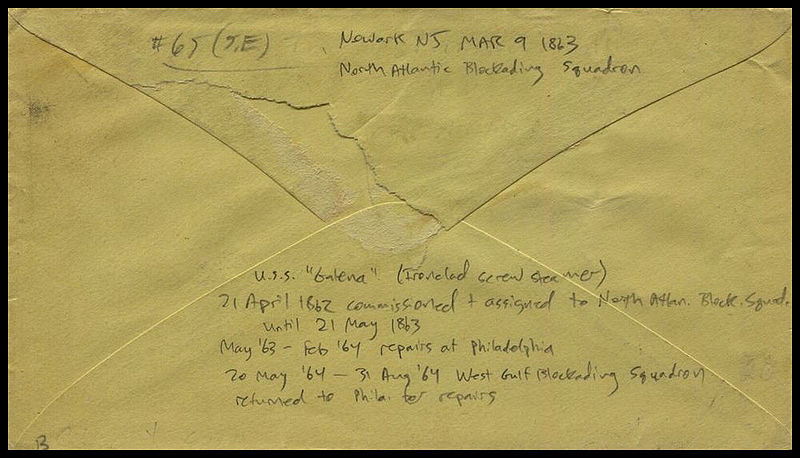 #65 (J.E)
Newark NJ, MAR 9 1863
North Atlantic Blockading Squadron
U.S.S. "Galena" (Ironclad screw steamer)
21 April 1862 commissioned + assigned to North Atlan. Block. Squad.
until 21 May 1863
May '63 - Feb '64 repairs at Philadelphia
20 May '64 — 31 Aug '64 West Gulf Blockading Squadron
returned to Phila. for repairs
B